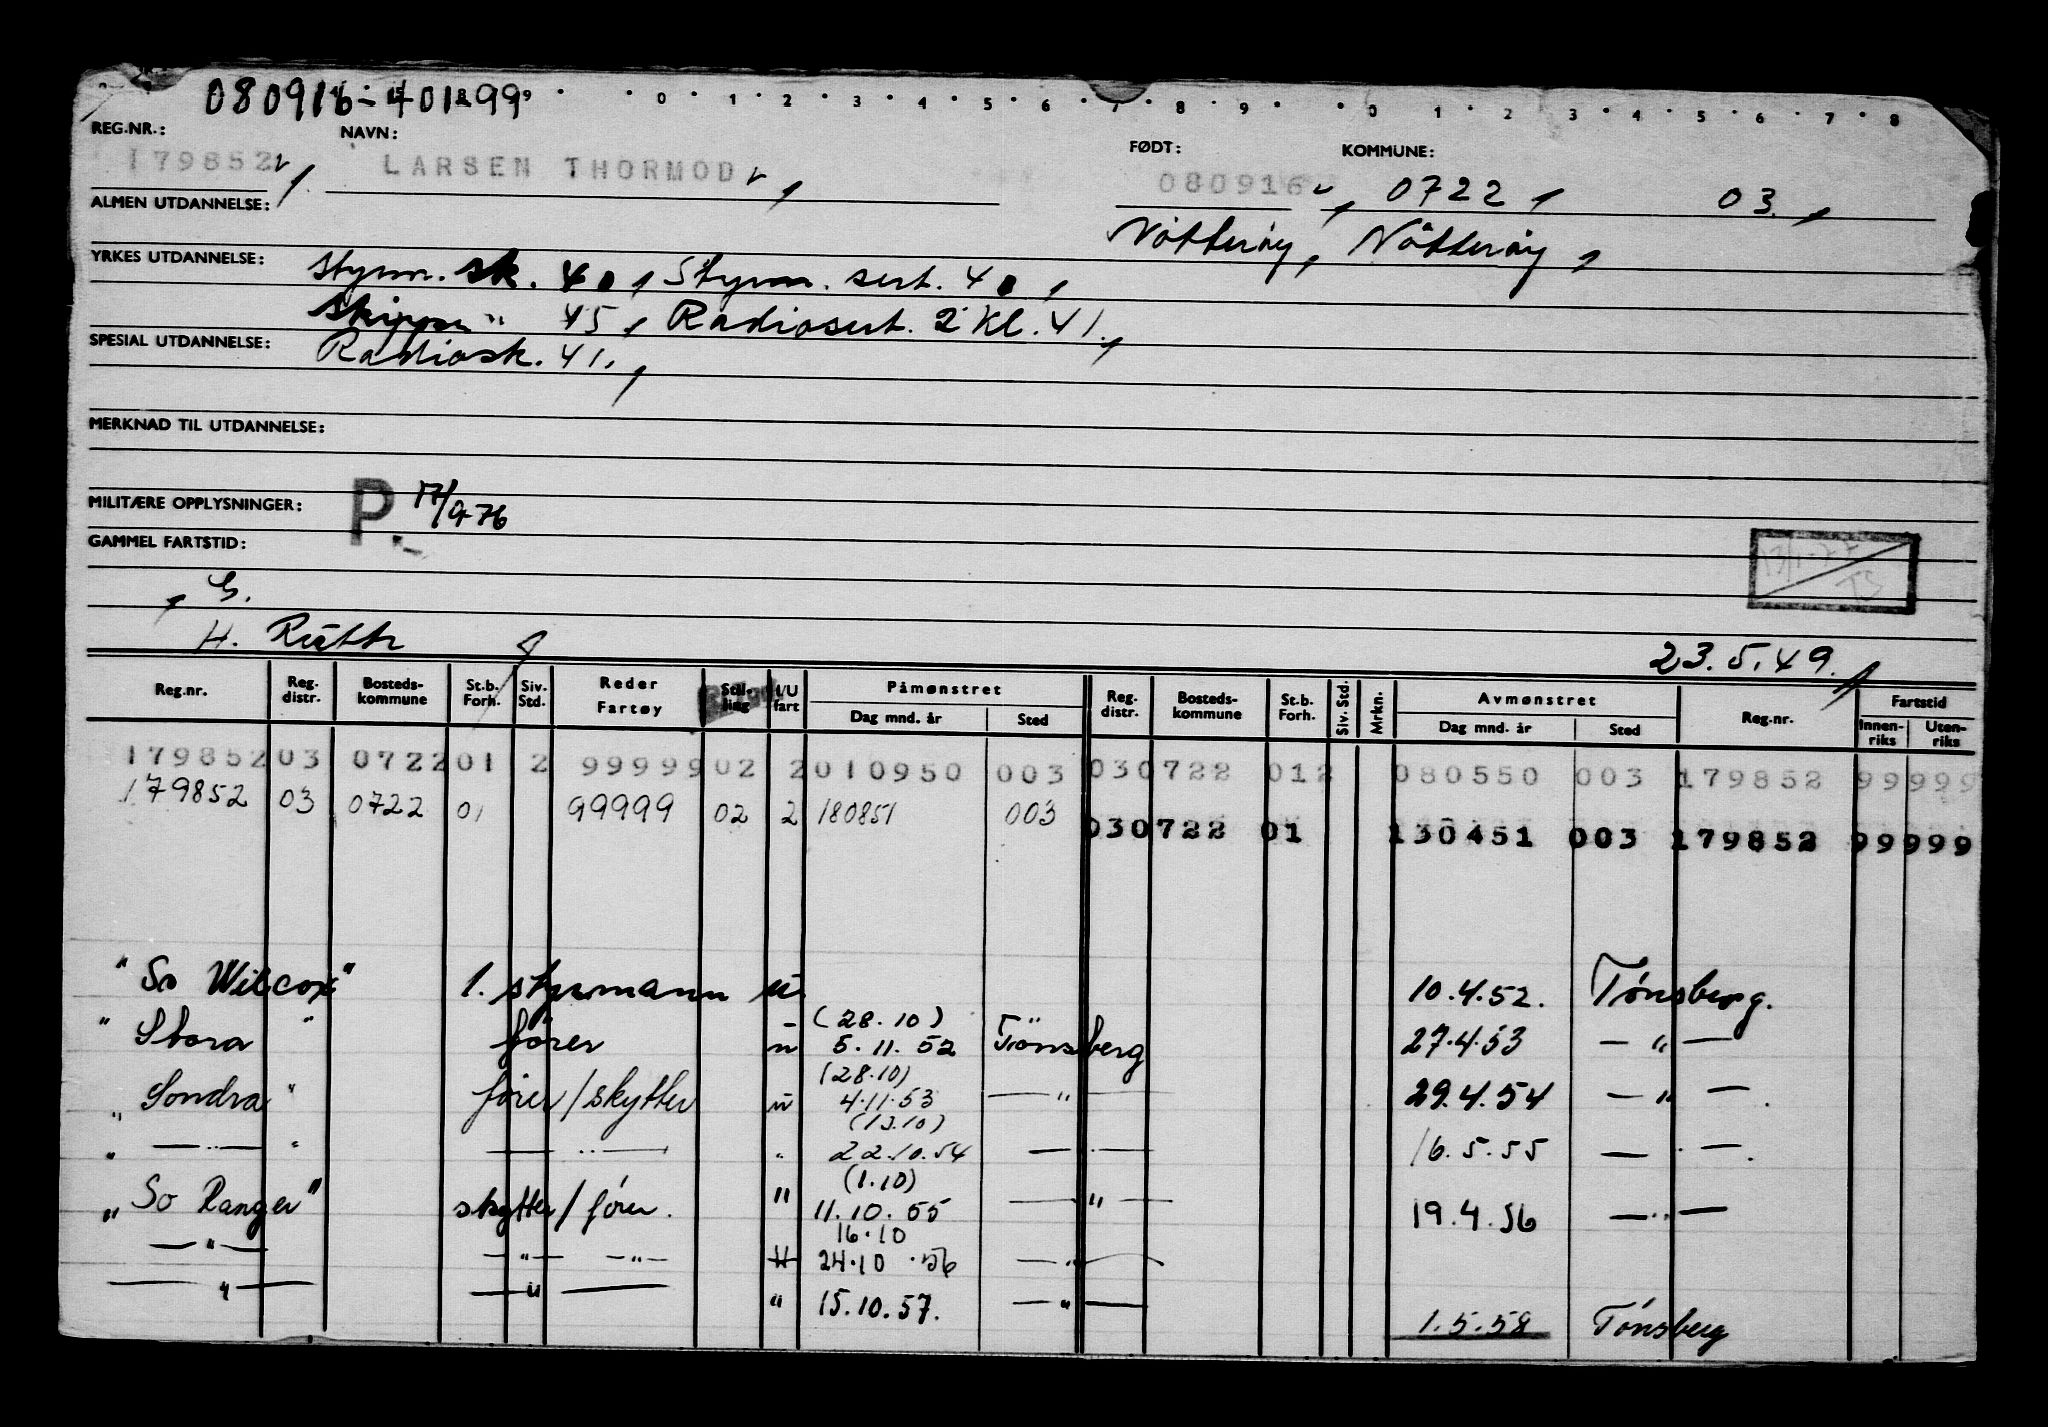 080916-40199
0 1 2 3 4 5 6 7 8 9 0 1 2 3 4 5 6 7 8
REG.NR.: NAVN: FØDT: KOMMUNE:
179852 LARSEN THORMOD 080916, 0722, 03.,
ALMEN UTDANNELSE: Nötteröy, Nötteröy,
YRKES UTDANNELSE: styrm. sk. 40, Styrm. sert. 40,
Skipper " 45, Radiosert. 2 Kl. 41.,
SPESIAL UTDANNELSE: Radiosk. 41.,
MERKNAD TIL UTDANNELSE:
MILITÆRE OPPLYSNINGER: P. 17/9-76
GAMMEL FARTSTID:
, G.
H. Ruth 23.5.49.
Reg.nr. Reg. distr. Bosteds-kommune St.b. Forh. Siv. Std. Reder Fartøy Stilling I/U fart Påmønstret Dag mnd. år Sted Reg. distr. Bosteds-kommune St.b. Forh. Siv. Std. Mrkn. Avmønstret Dag mnd. år Sted Reg.nr. Fartstid Innen-riks Uten-riks
179852 03 0722 01 2 99999 02 2 010950 003 03 0722 01 2 080550 003 179852 99 999
179852 03 0722 01 99999 02 2 180851 003 03 0722 01 130451 003 179852 99 999
" So Wilcox" 1. styrmann u. 10.4.52. Tønsberg.
" Stora " fører u (28.10) 5.11.52 Tönsberg 27.4.53 — " —
" Sondra " fører/skytter u (28.10) 4.11.53 — " — 29.4.54 — " — .
" — " — " — " — " (13.10) 22.10.54 — " — 16.5.55 — " — .
" So Ranger" skytter/fører. " (1.10) 11.10.55 — " — 19.4.56 — " —
— " — — " — — " — " 16.10 24.10.56 — " —
— " — — " — " 15.10.57. — " — 1.5.58 Tønsberg